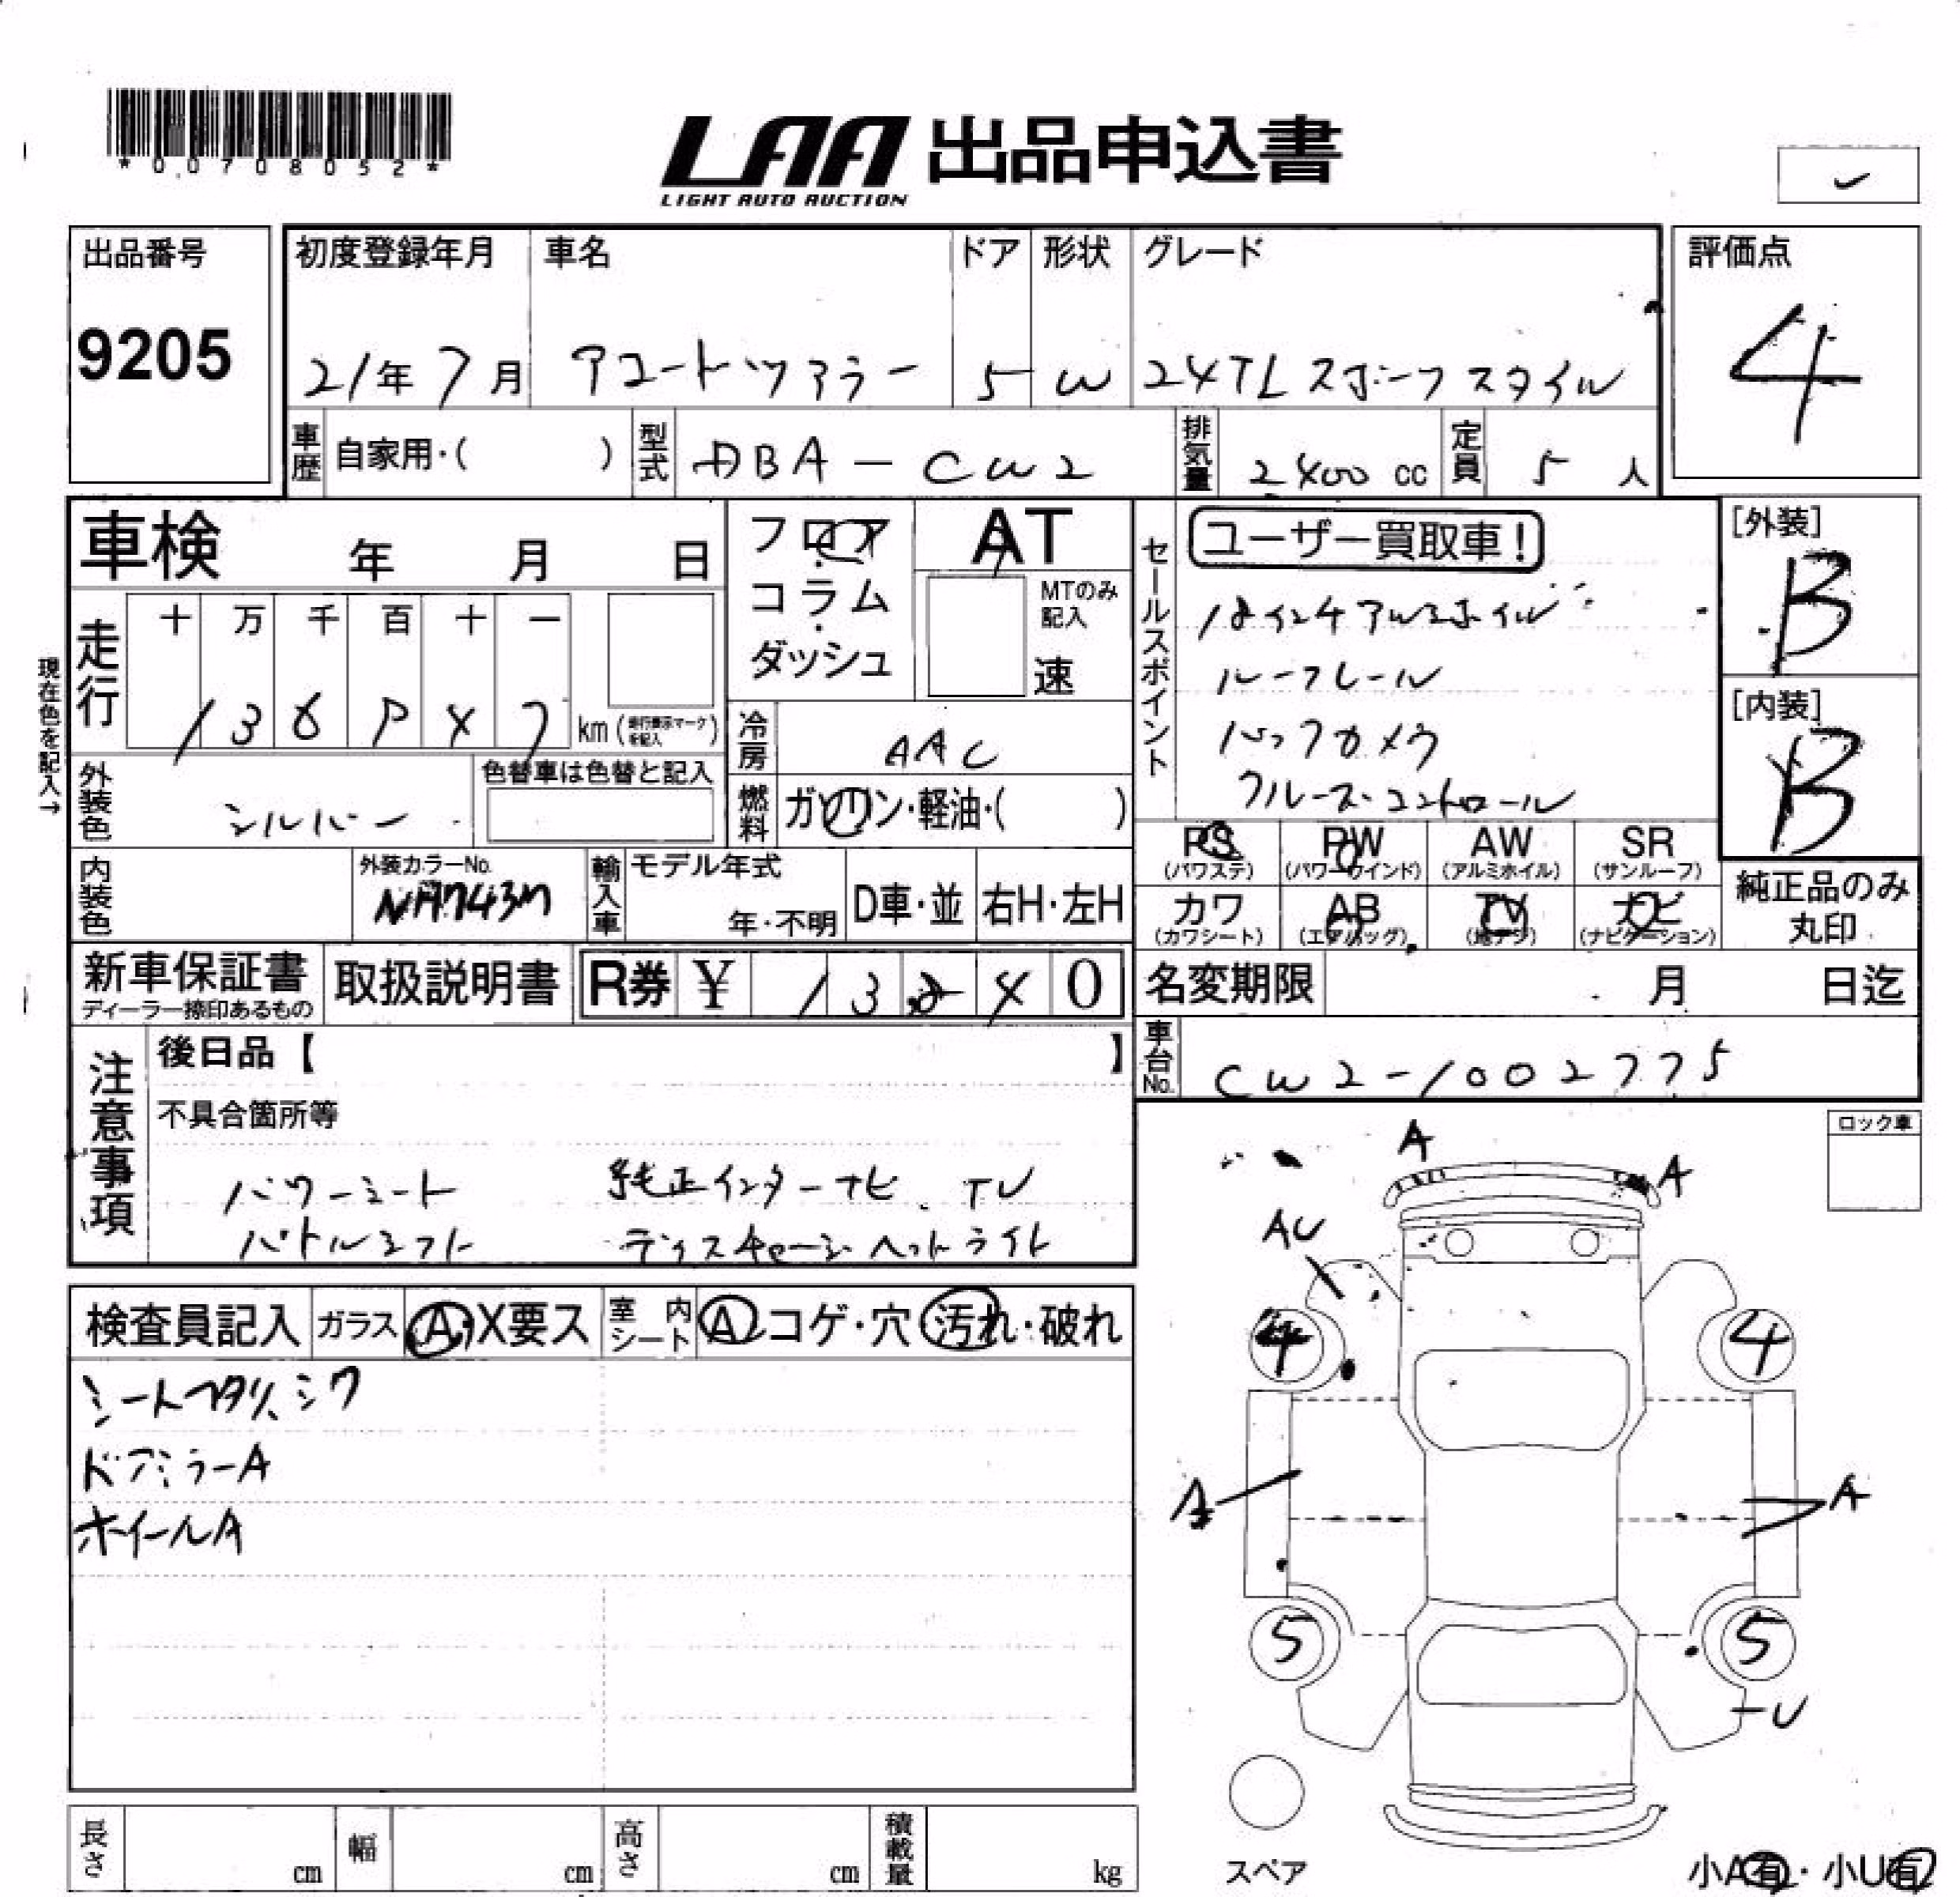 *00708052*
LAA 出品申込書
LIGHT AUTO AUCTION
出品番号
9205
初度登録年月 車名 ドア 形状 グレード
21年7月 アコードツアラー 5 W 24TL スポーツスタイル
評価点
4
車歴 自家用・( ) 型式 DBA-CW2 排気量 2400 cc 定員 5 人
車検 年 月 日
フロア・コラム・ダッシュ
AT
MTのみ記入
速
セールスポイント
ユーザー買取車!
18インチアルミホイル
ルーフレール
バックカメラ
クルーズ・コントロール
[外装]
B
[内装]
B
現在色を記入→
走行 十 万 千 百 十 一
km
冷房 AAC
外装色 シルバー 色替車は色替と記入
燃料 ガソリン・軽油・( )
PS PW AW SR
(パワステ) (パワーウインド) (アルミホイル) (サンルーフ)
カワ AB TV ナビ
(カワシート) (エアバッグ) (地デジ) (ナビゲーション)
純正品のみ
丸印
内装色 外装カラーNo. NH743M 輸入車 モデル年式 年・不明 D車・並 右H・左H
新車保証書 取扱説明書 R券 ¥ 0
ディーラー捺印あるもの
名変期限 月 日迄
車台No. CW2-1002775
注意事項
後日品【 】
不具合箇所等
パワーシート 純正インターナビ TV
パドルシフト ディスチャージヘッドライト
ロック車
検査員記入 ガラス A・X要ス 室内シート A コゲ・穴 汚れ・破れ
シートヘタリ、シワ
ドアミラーA
ホイールA
A
A
AU
4 4
A A
5 5
U
スペア
小A有・小U有
長さ cm 幅 cm 高さ cm 積載量 kg